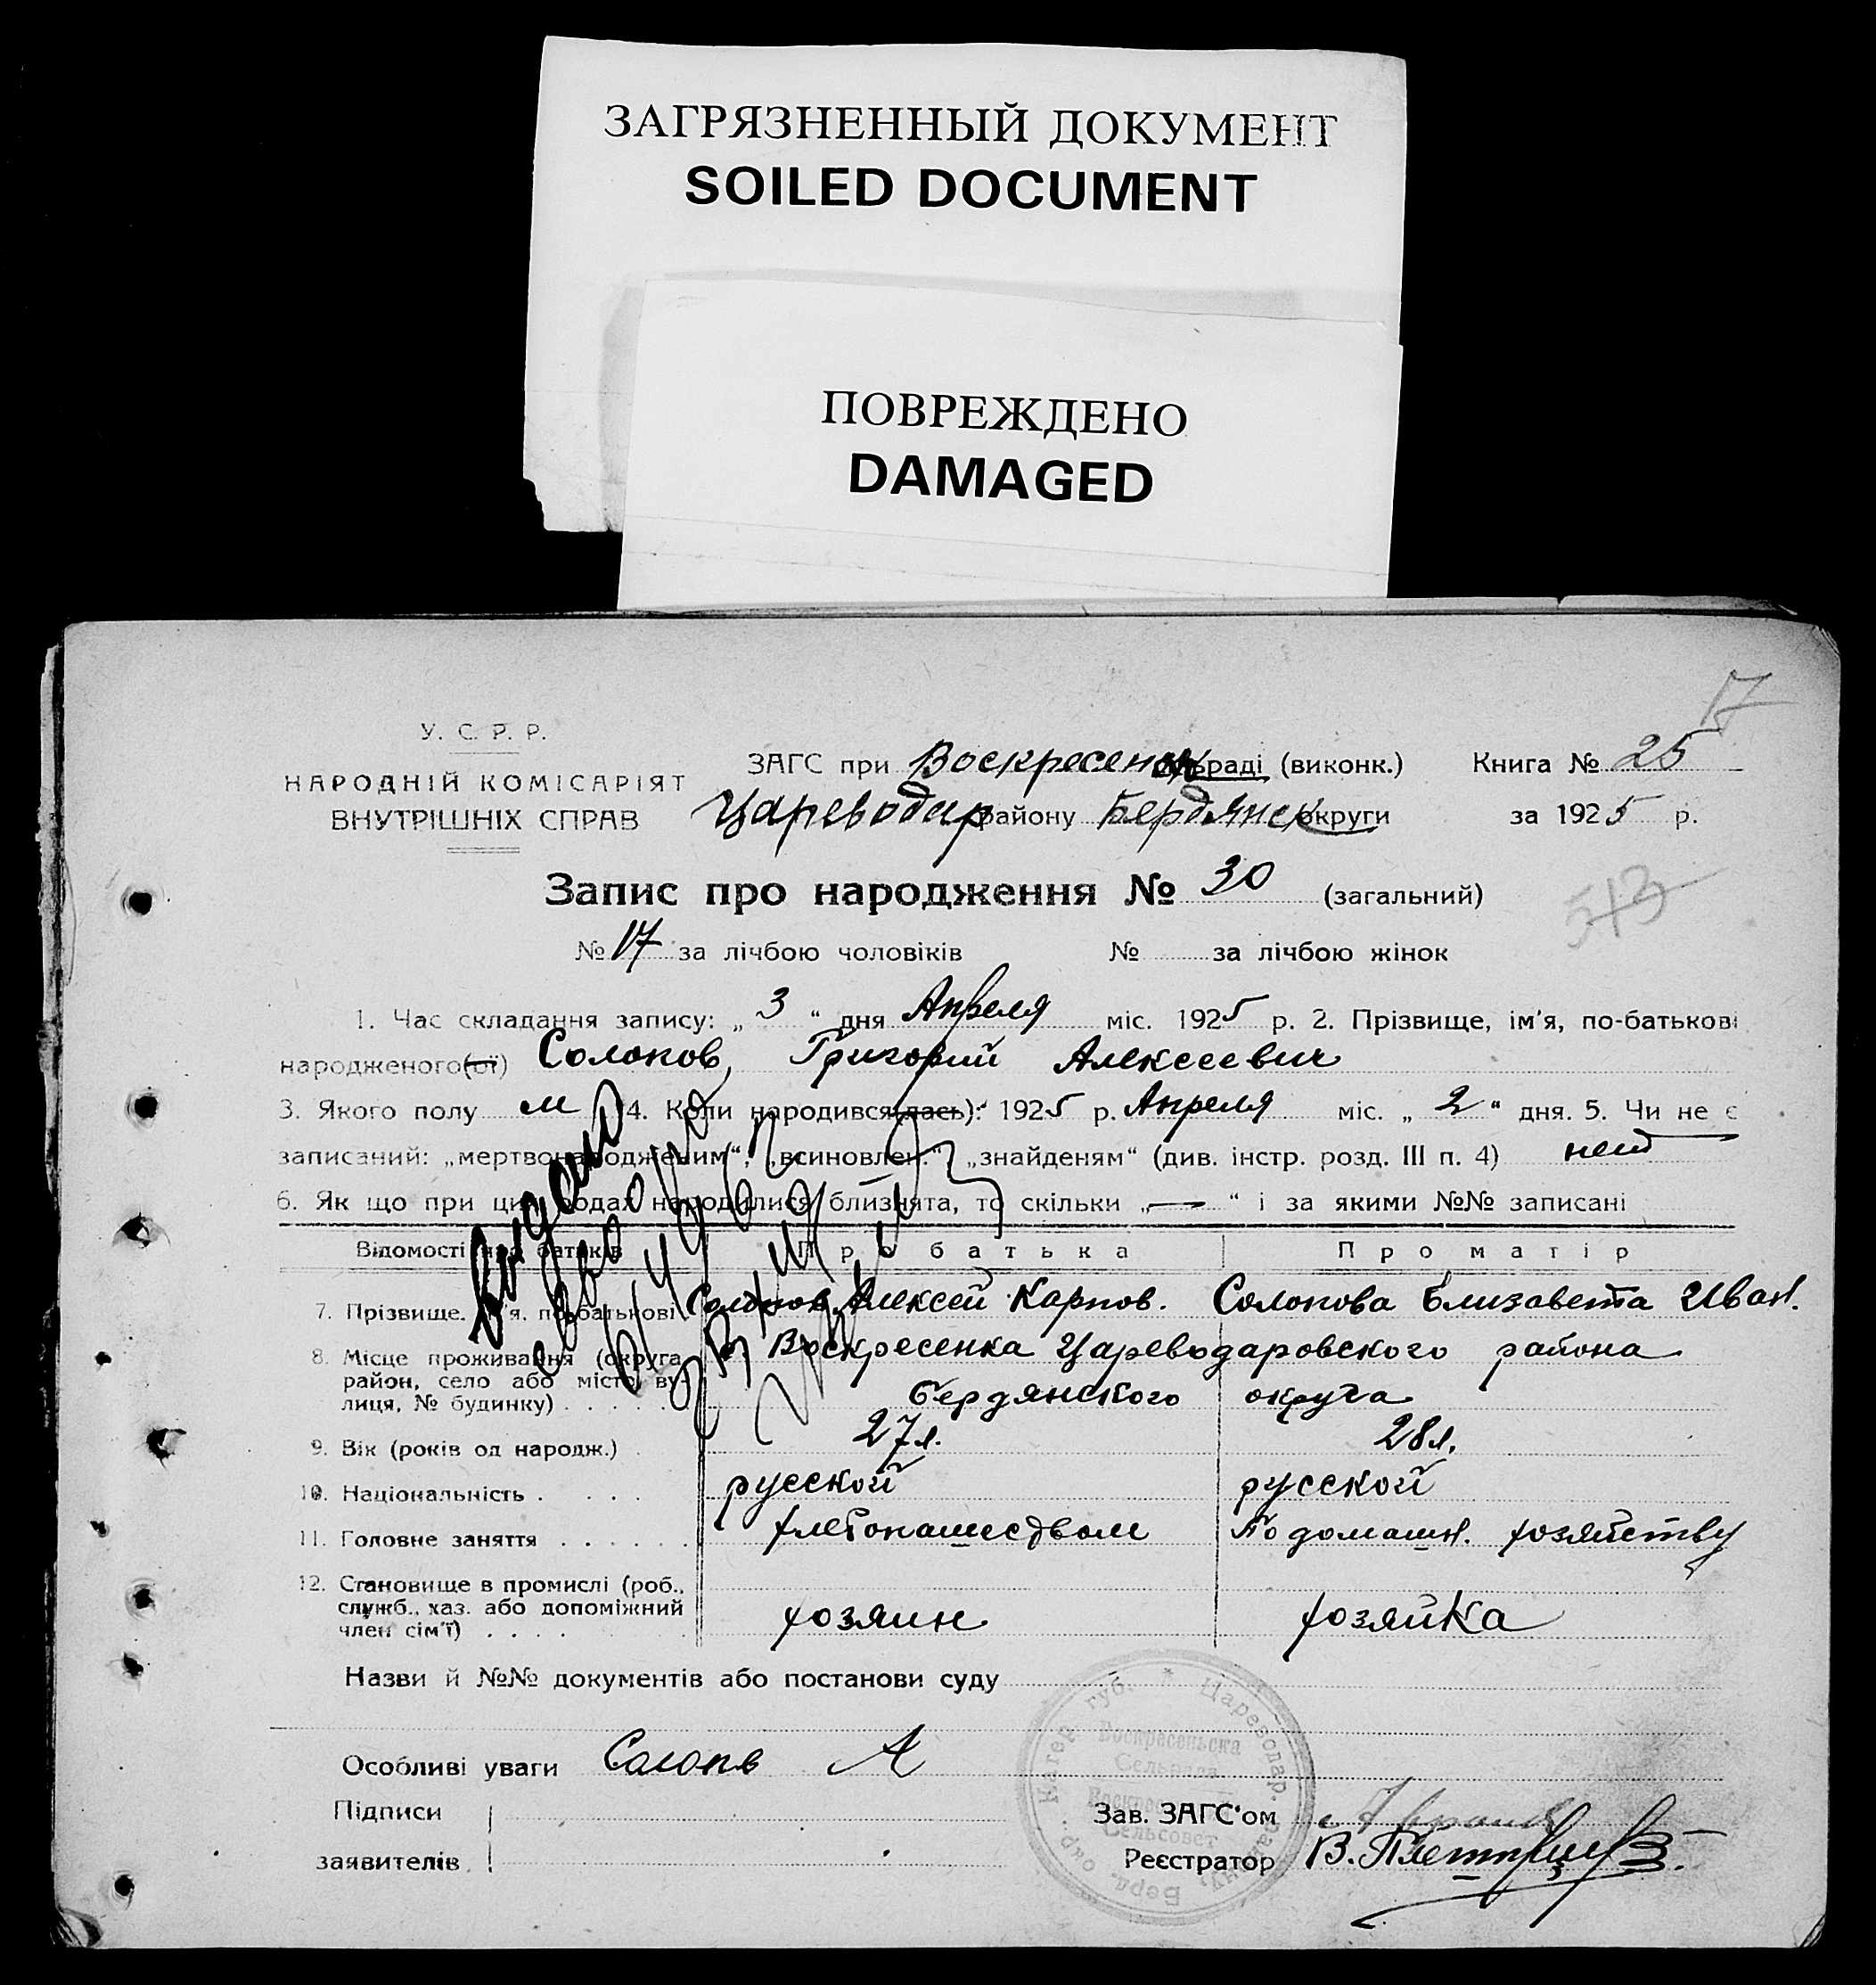 ЗАГРЯЗНЕННЫЙ ДОКУМЕНТ
SOILED DOCUMENT
ПОВРЕЖДЕНО
DAMAGED
17
У. С. Р. Р.
НАРОДНІЙ КОМІСАРІЯТ
ВНУТРІШНІХ СПРАВ
ЗАГС при Воскресенск раді (виконк.) Книга № 25
Цареводар району Бердянск округи за 1925 р.
Запис про народження № 30 (загальний)
513
№ 17 за лічбою чоловіків № за лічбою жінок
1. Час складання запису: „ 3 “ дня Апреля міс. 1925 р. 2. Прізвище, ім'я, по-батькові
народженого(ої) Солопов, Григорий Алексеевич
3. Якого полу м 4. Коли народився(лась): 1925 р. Апреля міс. „ 2 “ дня. 5. Чи не є
записаний: „мертвонародженим“, „всиновлен.“, „знайденям“ (див. інстр. розд. III п. 4) нет
6. Як що при цих родах народилися близнята, то скільки „ — “ і за якими №№ записані
Відомості про батьків Про батька Про матір
7. Прізвище. ім'я. по-батькові Солопов Алексей Карпов. Солопова Елизавета Иван.
8. Місце проживання (округа, район, село або місто, вулиця, № будинку) . . . . . Воскресенка Цареводаровского района
Бердянского округа
9. Вік (років од народж.) . 27 л. 28 л.
10. Національність . . . . русской русской
11. Головне заняття . . . . . . хлебопашеством По домашн. хозяйству
12. Становище в промислі (роб., служб., хаз. або допоміжний член сім'ї) . . . . хозяин хозяйка
Выдано
Назви й №№ документів або постанови суду
Особливі уваги Солопв А
Підписи
заявителів
Зав. ЗАГС'ом
Реєстратор В.
губ. * Цареводар. району
Воскресенська
Сельрада
Сельсовет